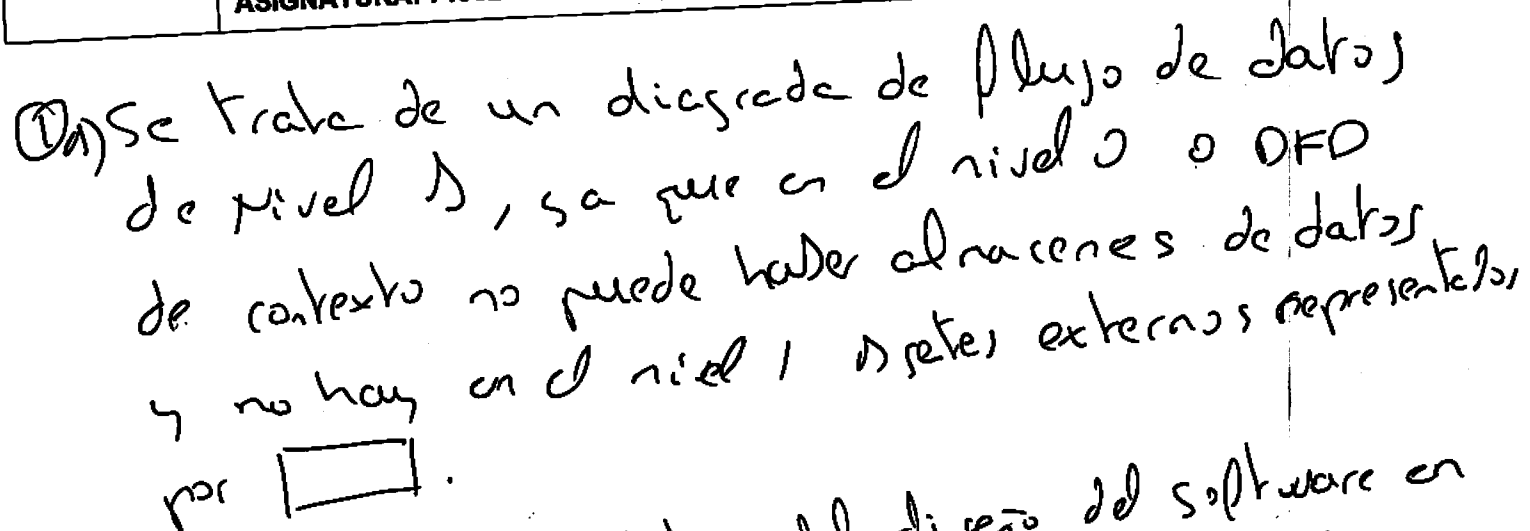 ASIGNATURA:
① a) Se trata de un diagrada de flujo de datos
de Nivel 1, ya que en el nivel 0 o DFD
de contexto no puede haber almacenes de datos
y no hay en el nivel 1 externos representados
por
del diseño del software en